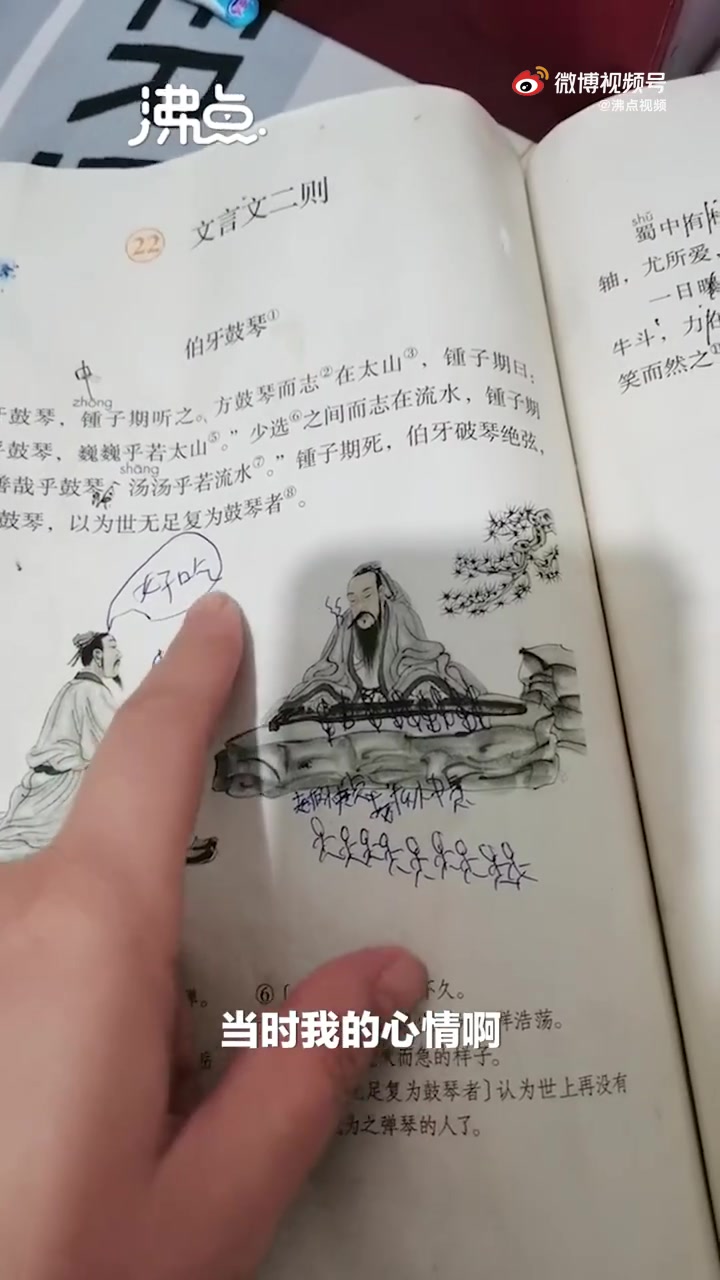 沸点
微博视频号
@沸点视频
22 文言文二则
伯牙鼓琴①
中
zhōng
鼓琴，锺子期听之。方鼓琴而志②在太山③，锺子期曰：
鼓琴，巍巍乎若太山⑤。”少选⑥之间而志在流水，锺子期
shāng
善哉乎鼓琴，汤汤乎若流水⑦。”锺子期死，伯牙破琴绝弦，
鼓琴，以为世无足复为鼓琴者⑧。
好吃
⑥〔
不久。
浩荡。
而急的样子。
足复为鼓琴者〕认为世上再没有
为之弹琴的人了。
shǔ
蜀中有
轴，尤所爱，
一日曝
牛斗，力在
笑而然之①
当时我的心情啊